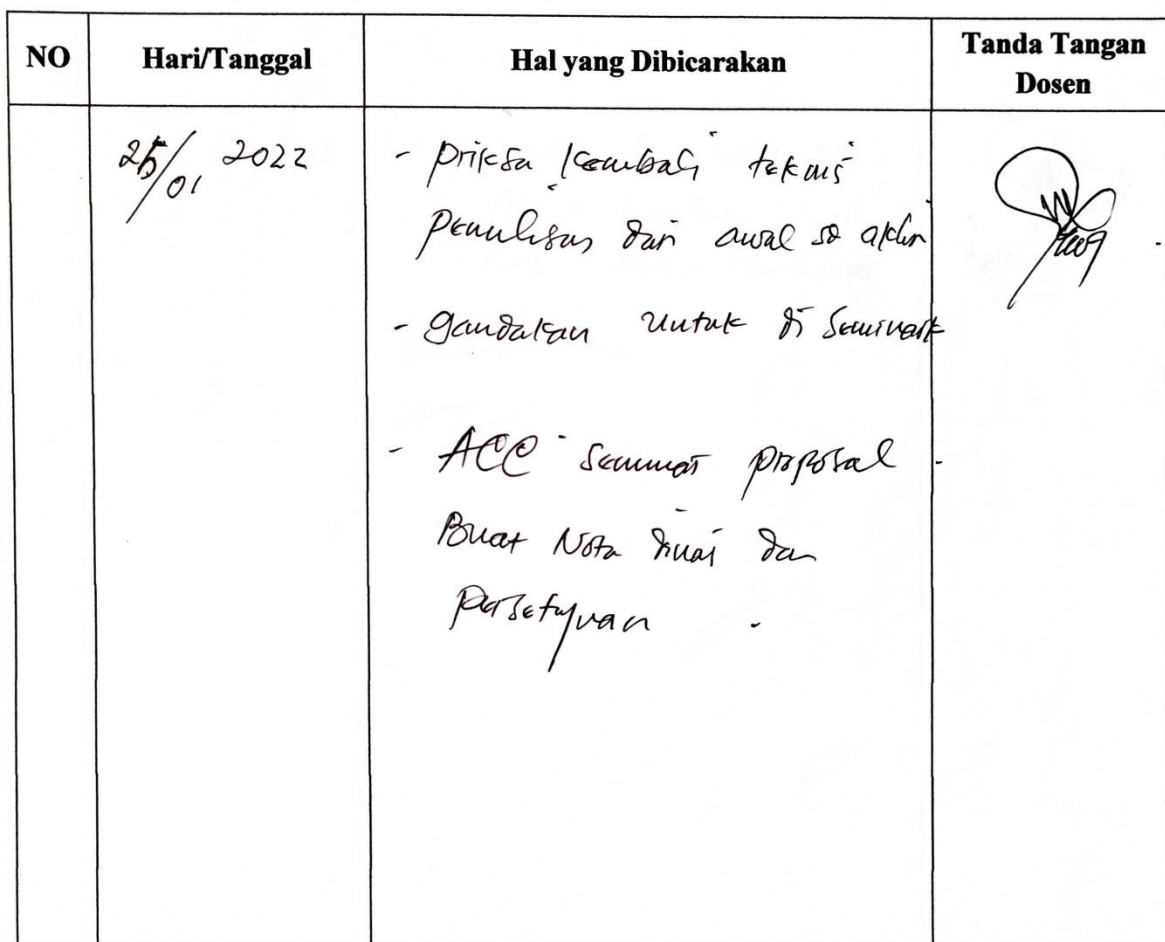 NO
Hari/Tanggal
Hal yang Dibicarakan
Tanda Tangan
Dosen
25/01 2022
- priksa kembali teknis
penulisan dari awal sd akhir
- gandakan untuk di seminark
- ACC seminar proposal.
Buat Nota dinas dan
persetujuan.